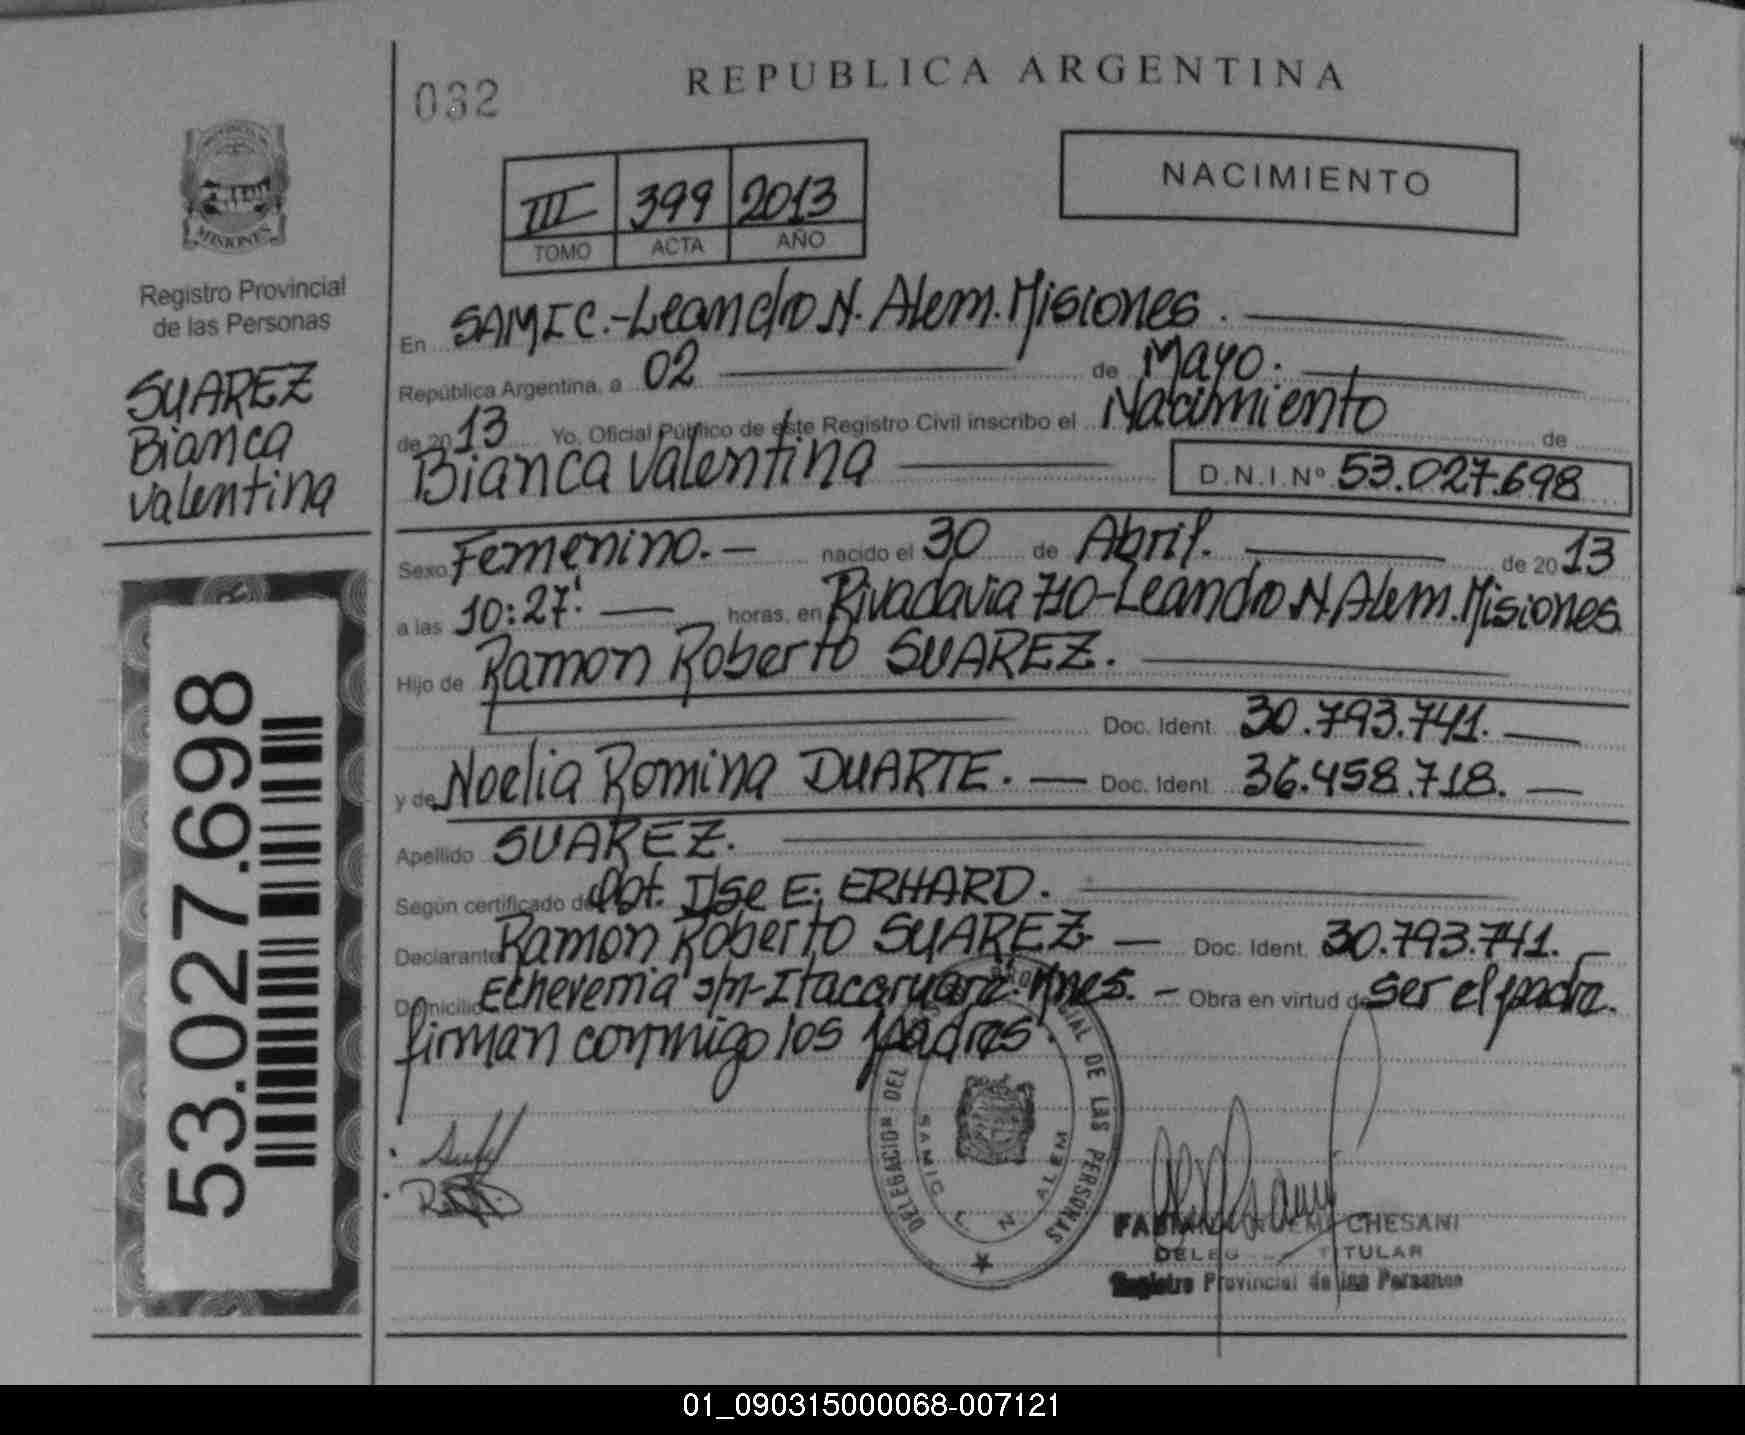 032
REPUBLICA ARGENTINA
NACIMIENTO
III 399 2013
TOMO ACTA AÑO
MISIONES
Registro Provincial
de las Personas
SUAREZ
Bianca
Valentina
53.027.698
En SAMIC.-Leandro N. Alem. Misiones.
República Argentina, a 02 de Mayo.
de 2013 Yo, Oficial Público de este Registro Civil inscribo el Nacimiento de
Bianca Valentina D.N.I.Nº 53.027.698
Sexo Femenino. nacido el 30 de Abril. de 2013
a las 10:27' horas, en Rivadavia 710-Leandro N. Alem. Misiones
Hijo de Ramon Roberto SUAREZ.
Doc. Ident. 30.793.741.
y de Noelia Romina DUARTE. Doc. Ident. 36.458.718.
Apellido SUAREZ.
Según certificado de Obt. Ilse E. ERHARD.
Declarante Ramon Roberto SUAREZ Doc. Ident. 30.793.741.
Domicilio Echeverria s/n-Itacaruare. Mnes. Obra en virtud de ser el padre.
firman conmigo los padres.
DELEGACION DEL DE LAS PERSONAS
SAMIC L. N. ALEM
CHESANI
TITULAR
Registro Provincial de las Personas
01_090315000068-007121